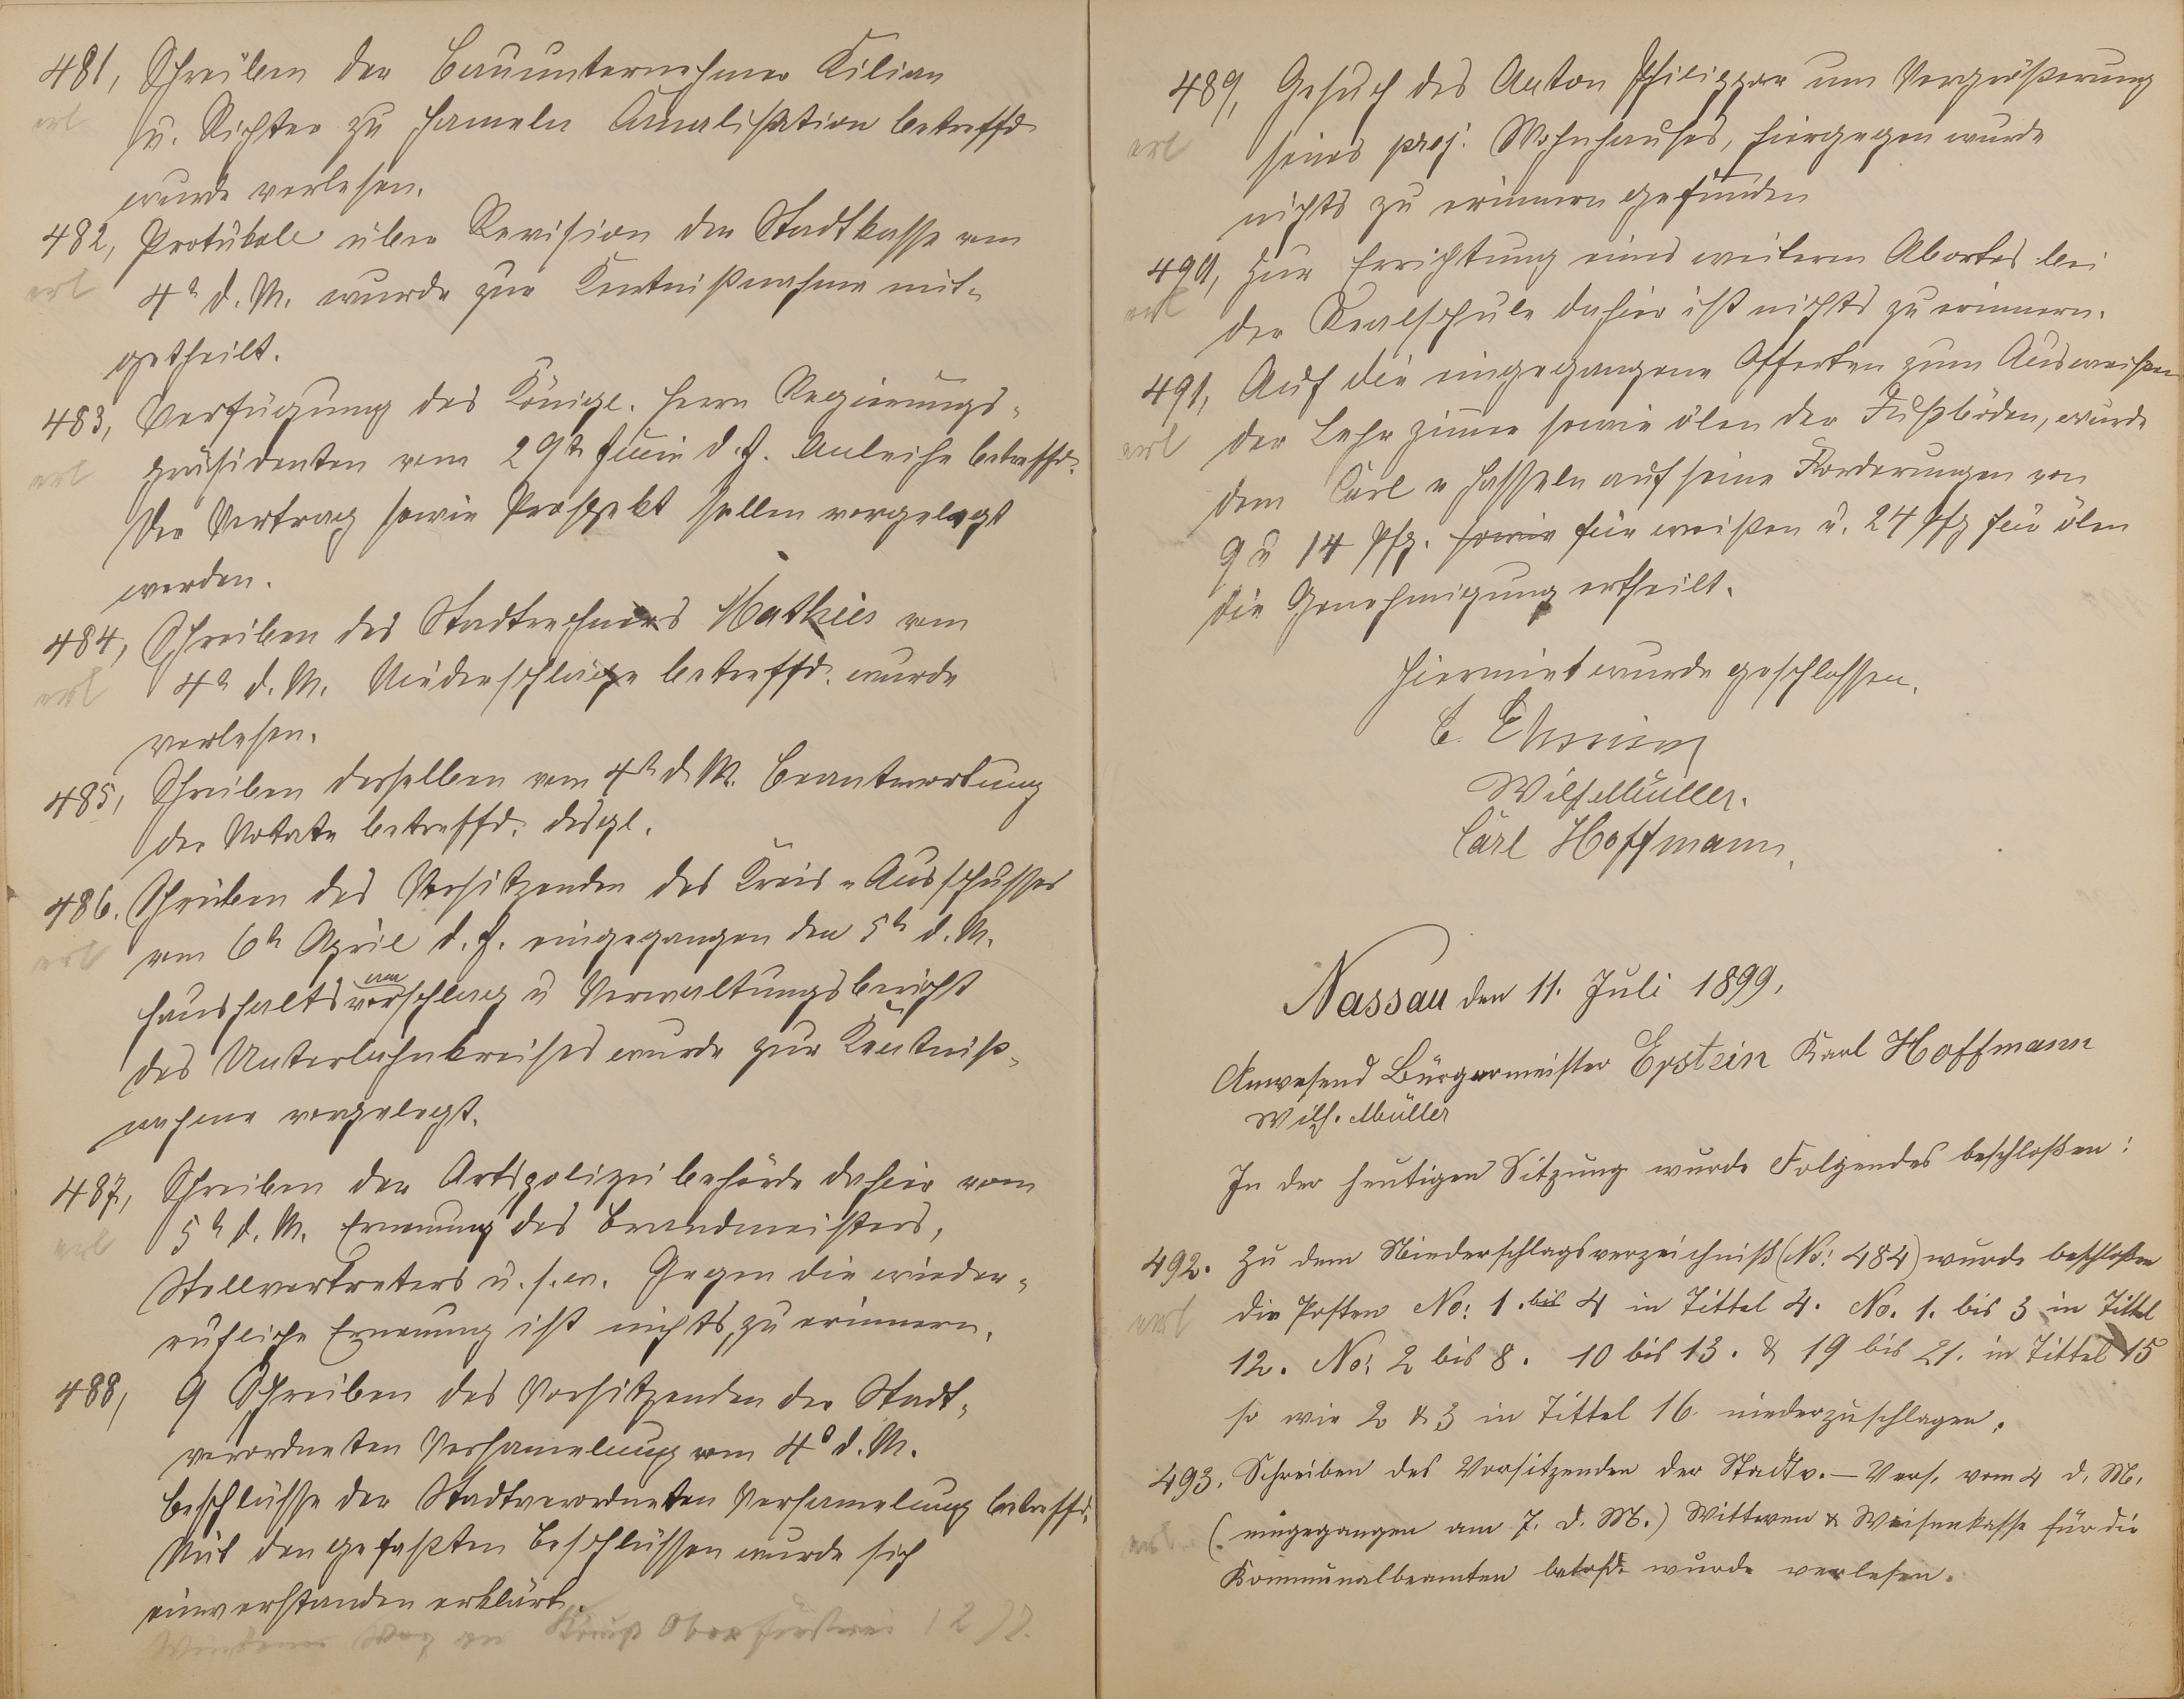 481, Schreiben der Bauunternehmer Kilian
erl u. Richter zu Hameln Canalisation betreffd
wurde verlesen.
482, Protukoll über Revision der Stadtkasse vom
erl 4t d. M. wurde zur Kentnißnahme mit-
getheilt.
483, Verfügung des Königl. Herrn Regierungs-
erl präsidenten vom 29t Juni d. J. Anleihe betreffd.
Der Vertrag sowie Prospekt sollen vorgelegt
werden.
484, Schreiben des Stadtrechners Mathies vom
erl 4t d. M. Niederschläge betreffd. wurde
verlesen.
485, Schreiben desselben vom 4t d. M. Beantwortung
der Notate betreffd. desgl.
486. Schreiben des Vorsitzenden des Kreis-Ausschusses
erl vom 6t April d. J. eingegangen den 5t d. M.
Haushaltsvorschlag u Verwaltungsbericht
des Unterlahnkreises wurde zur Kentniß-
nahme vorgelegt.
487, Schreiben der Ortspolizeibehörde dahier vom
erl 5t d. M. Ernenung des Brandmeisters,
Stellvertreters u. s. w. Gegen die wieder-
rufliche Ernenung ist nichts zu erinnern.
488, 9 Schreiben des Vorsitzenden der Stadt-
verordneten Versamelung vom 4t d. M.
Beschlüsse der Stadtverordneten Versamelung betreffd.
Mit den gefaßten Beschlüssen wurde sich
einverstanden erklärt.
489, Gesuch des Anton Philippar um Vergrößerung
erl seines proj. Wohnhauses, hiergegen wurde
nichts zu erinnern gefunden
490, Zur Errichtung eines weiteren Abortes bei
erl der Realschule dahier ist nichts zu erinnern.
491, Auf die eingegangene Offerten zum Ausweißen
erl der Lehrzimer sowie ölen der Fußböden, wurde
dem Carl v Hasseln auf seine Forderungen von
9 u 14 Pfg. sowie für weißen u. 24 Pfg für ölen
die Genehmigung ertheilt.
Hiermit wurde geschlossen.
Wilh Müller.
Carl Hoffmann.
Nassau den 11. Juli 1899.
Anwesend Bürgermeister Epstein Karl Hoffmann
Wilh. Müller
In der heutigen Sitzung wurde Folgendes beschloßen:
492. Zu dem Niederschlagsverzeichniß (No: 484) wurde beschloßen
erl die Posten No: 1. bis 4 in Tittel 4. No. 1. bis 3 in Tittel
12. No: 2 bis 8. 10 bis 13. & 19 bis 21. in Tittel 15
so wie 2 & 3 in Tittel 16. niederzuschlagen.
493. Schreiben des Vorsitzenden der Stadtv.-Vers. vom 4 d. M.
erl (eingegangen am 7. d. M.) Wittwen & Waisenkasse für die
Kommunalbeamten betrfd. wurde verlesen.